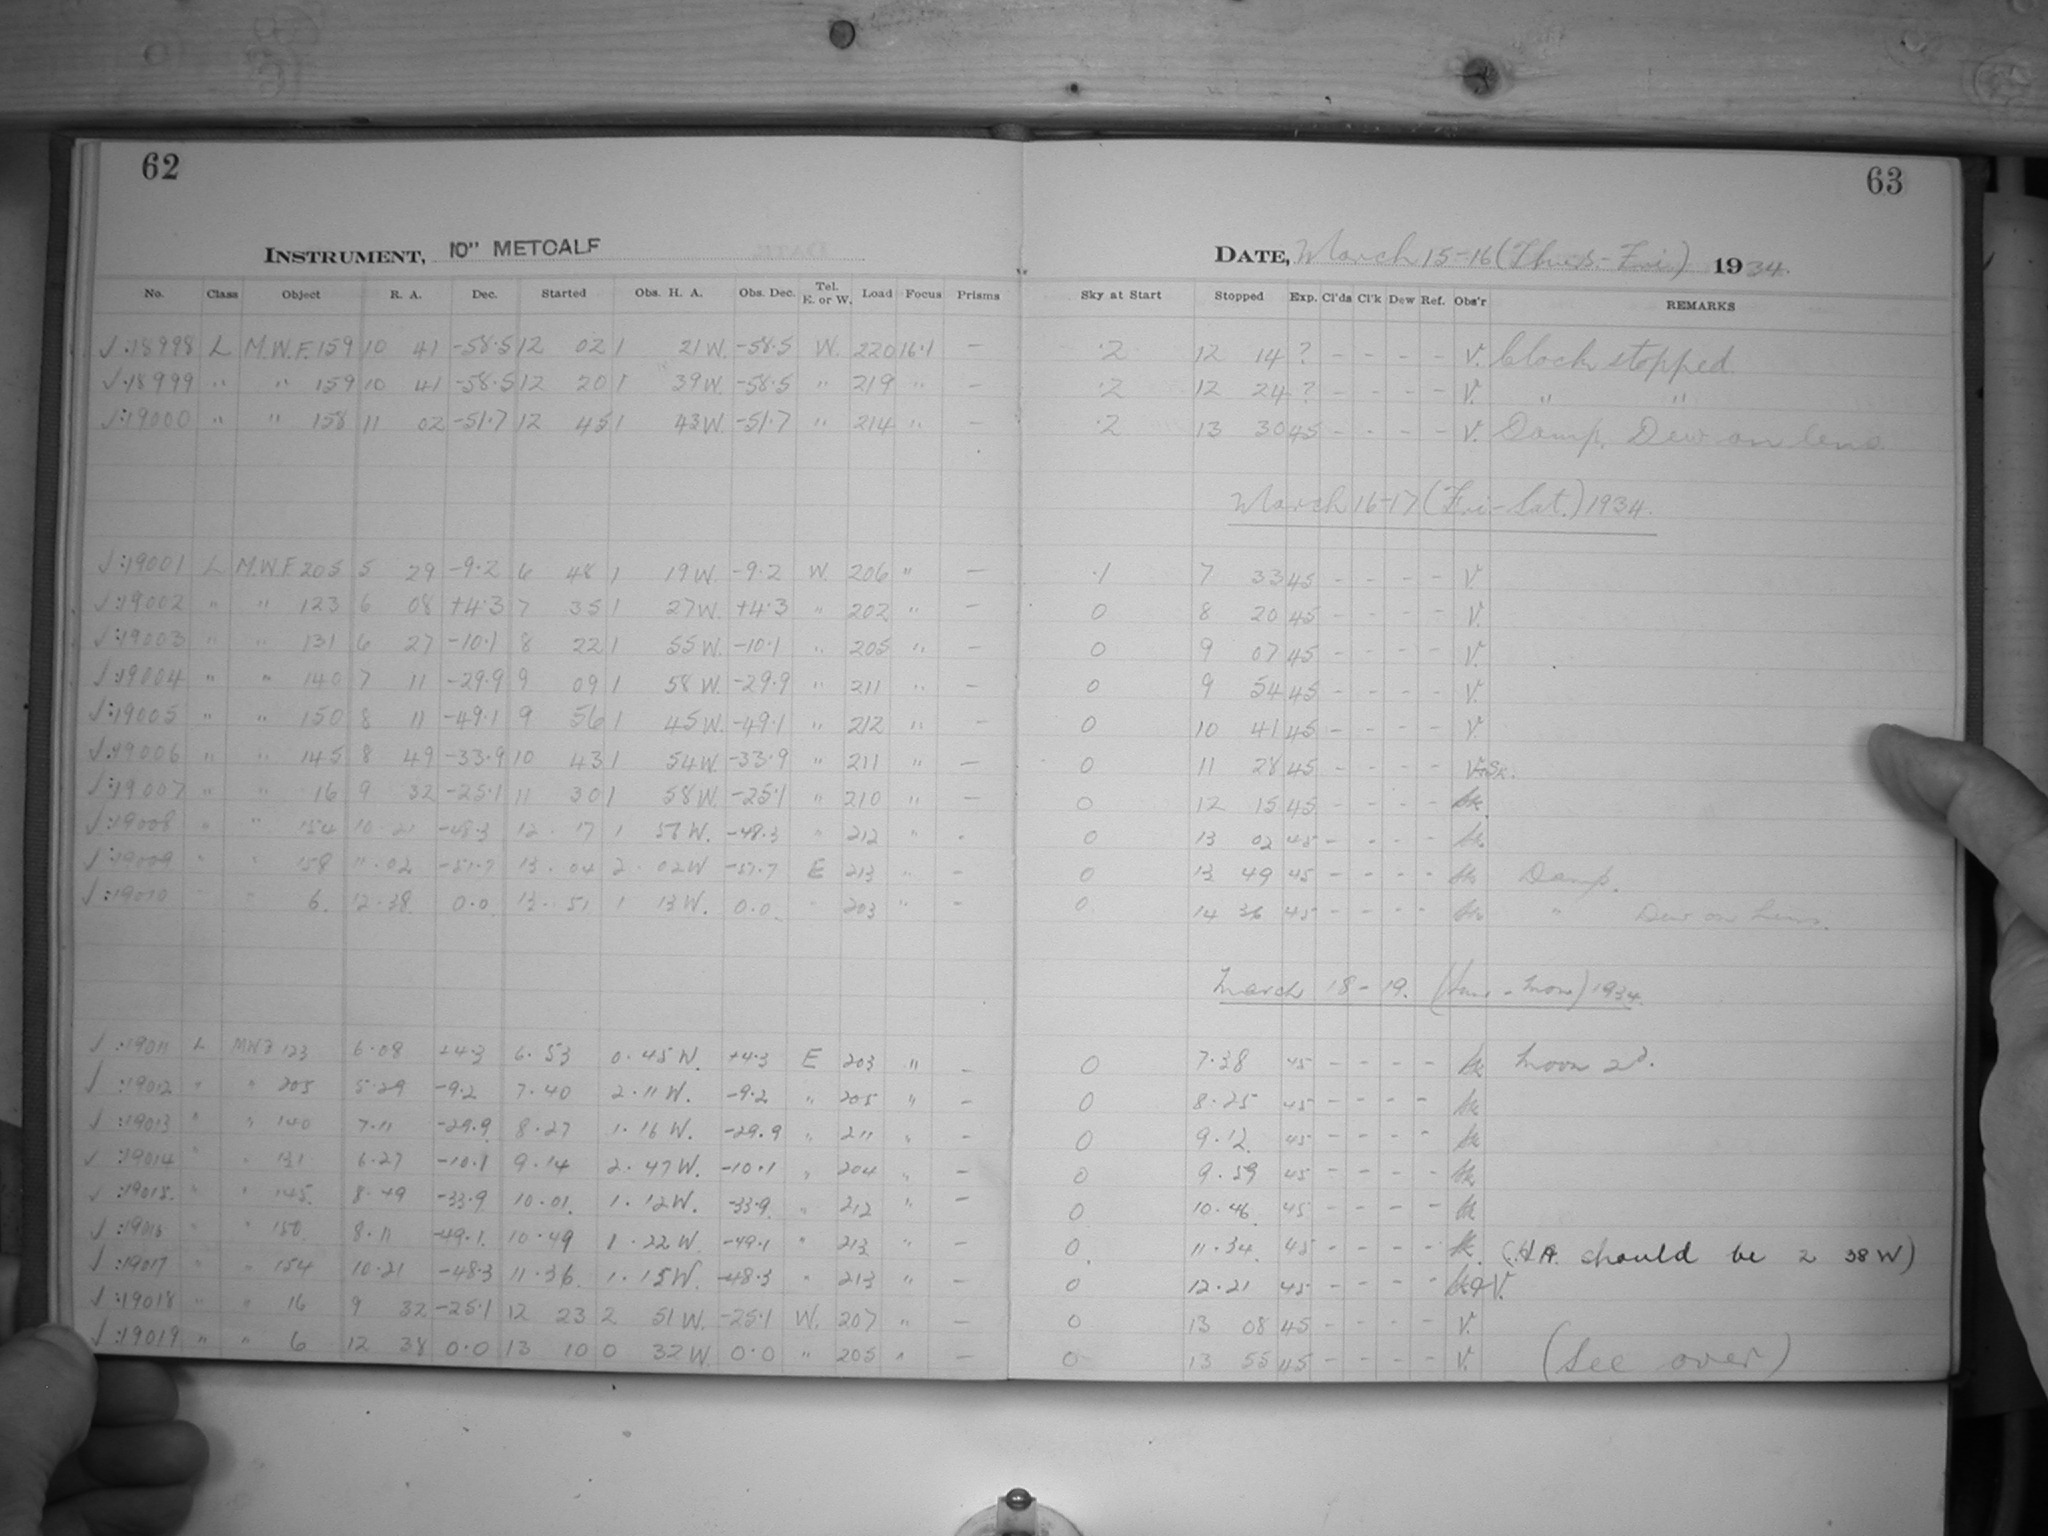 62
63
INSTRUMENT, 10" METCALF
DATE, March 15-16 (Thurs.-Fri.) 1934.
No. Class Object R. A. Dec. Started Obs. H. A. Obs. Dec. Tel. E. or W. Load Focus Prisms Sky at Start Stopped Exp. Cl'ds Cl'k Dew Ref. Obs'r REMARKS
√:18998 L M.W.F. 159 10 41 -58.5 12 02 1 21 W. -58.5 W. 220 16.1 — .2 12 14 ? - - - - V. Clock stopped.
√:18999 " " 159 10 41 -58.5 12 20 1 39 W. -58.5 " 219 " — .2 12 24 ? - - - - V. " "
√:19000 " " 158 11 02 -51.7 12 45 1 43 W. -51.7 " 214 " — .2 13 30 45 - - - - V. Damp. Dew on lens.
March 16-17 (Fri-Sat.) 1934.
√:19001 L M.W.F 205 5 29 -9.2 6 48 1 19 W. -9.2 W. 206 " — .1 7 33 45 - - - - V.
√:19002 " " 123 6 08 +4.3 7 35 1 27 W. +4.3 " 202 " — 0 8 20 45 - - - - V.
√:19003 " " 131 6 27 -10.1 8 22 1 55 W. -10.1 " 205 " — 0 9 07 45 - - - - V.
√:19004 " " 140 7 11 -29.9 9 09 1 58 W. -29.9 " 211 " — 0 9 54 45 - - - - V.
√:19005 " " 150 8 11 -49.1 9 56 1 45 W. -49.1 " 212 " — 0 10 41 45 - - - - V.
√:19006 " " 145 8 49 -33.9 10 43 1 54 W. -33.9 " 211 " — 0 11 28 45 - - - -
√:19007 " " 16 9 32 -25.1 11 30 1 58 W. -25.1 " 210 " — 0 12 15 45 - - - -
√:19008 " " 154 10.21 -48.3 12.17 1 57 W. -48.3 " 212 " - 0 13 02 45 - - - -
√:19009 " " 158 11.02 -51.7 13.04 2.02 W -51.7 E 213 " - 0 13 49 45 - - - - Damp.
√:19010 " " 6. 12.38. 0.0 13.51 1 13 W. 0.0. " 203 " - 0 14 36 45 - - - - " Dew on Lens.
March 18-19. (Sun-Mon) 1934.
√:19011 L MWF 123 6.08 +4.3 6.53 0.45 W. +4.3 E 203 " - 0 7.38 45 - - - - Moon 2d.
√:19012 " " 205 5.29 -9.2 7.40 2.11 W. -9.2 " 205 " - 0 8.25 45 - - - -
√:19013 " " 140 7.11 -29.9 8.27 1.16 W. -29.9 " 211 " - 0 9.12. 45 - - - -
√:19014 " " 131 6.27 -10.1 9.14 2.47 W. -10.1 " 204 " - 0 9.59 45 - - - -
√:19015. " " 145. 8.49 -33.9 10.01. 1.12 W. -33.9. " 212 " - 0 10.46. 45 - - - -
√:19016 " " 150 8.11 -49.1. 10.49 1.22 W. -49.1 " 213 " - 0. 11.34. 45 - - - - (H.A. should be 2 38 W)
√:19017 " " 154 10.21 -48.3 11.36. 1.15 W. -48.3 " 213 " - 0 12.21 45 - - - -
√:19018 " " 16 9 32 -25.1 12 23 2 51 W. -25.1 W. 207 " — 0 13 08 45 - - - - V.
√:19019 " " 6 12 38 0.0 13 10 0 32 W 0.0 " 205 " — 0 13 55 45 - - - - V. (See over)